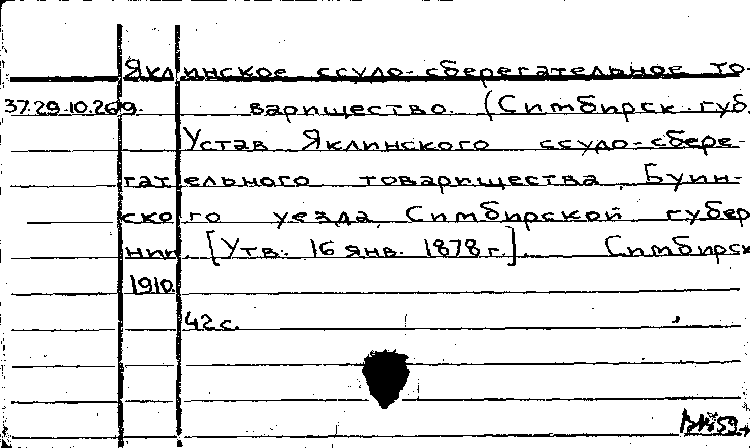 Яклинское ссудо-сберегательное то-
37.29.10.269. варищество. (Симбирск. губ.
Устав Яклинского ссудо-сбере-
гательного товарищества, Буин-
ского уезда, Симбирской губер
нии. [Утв. 16 янв. 1878 г.]. Симбирск
1910.
42 с.